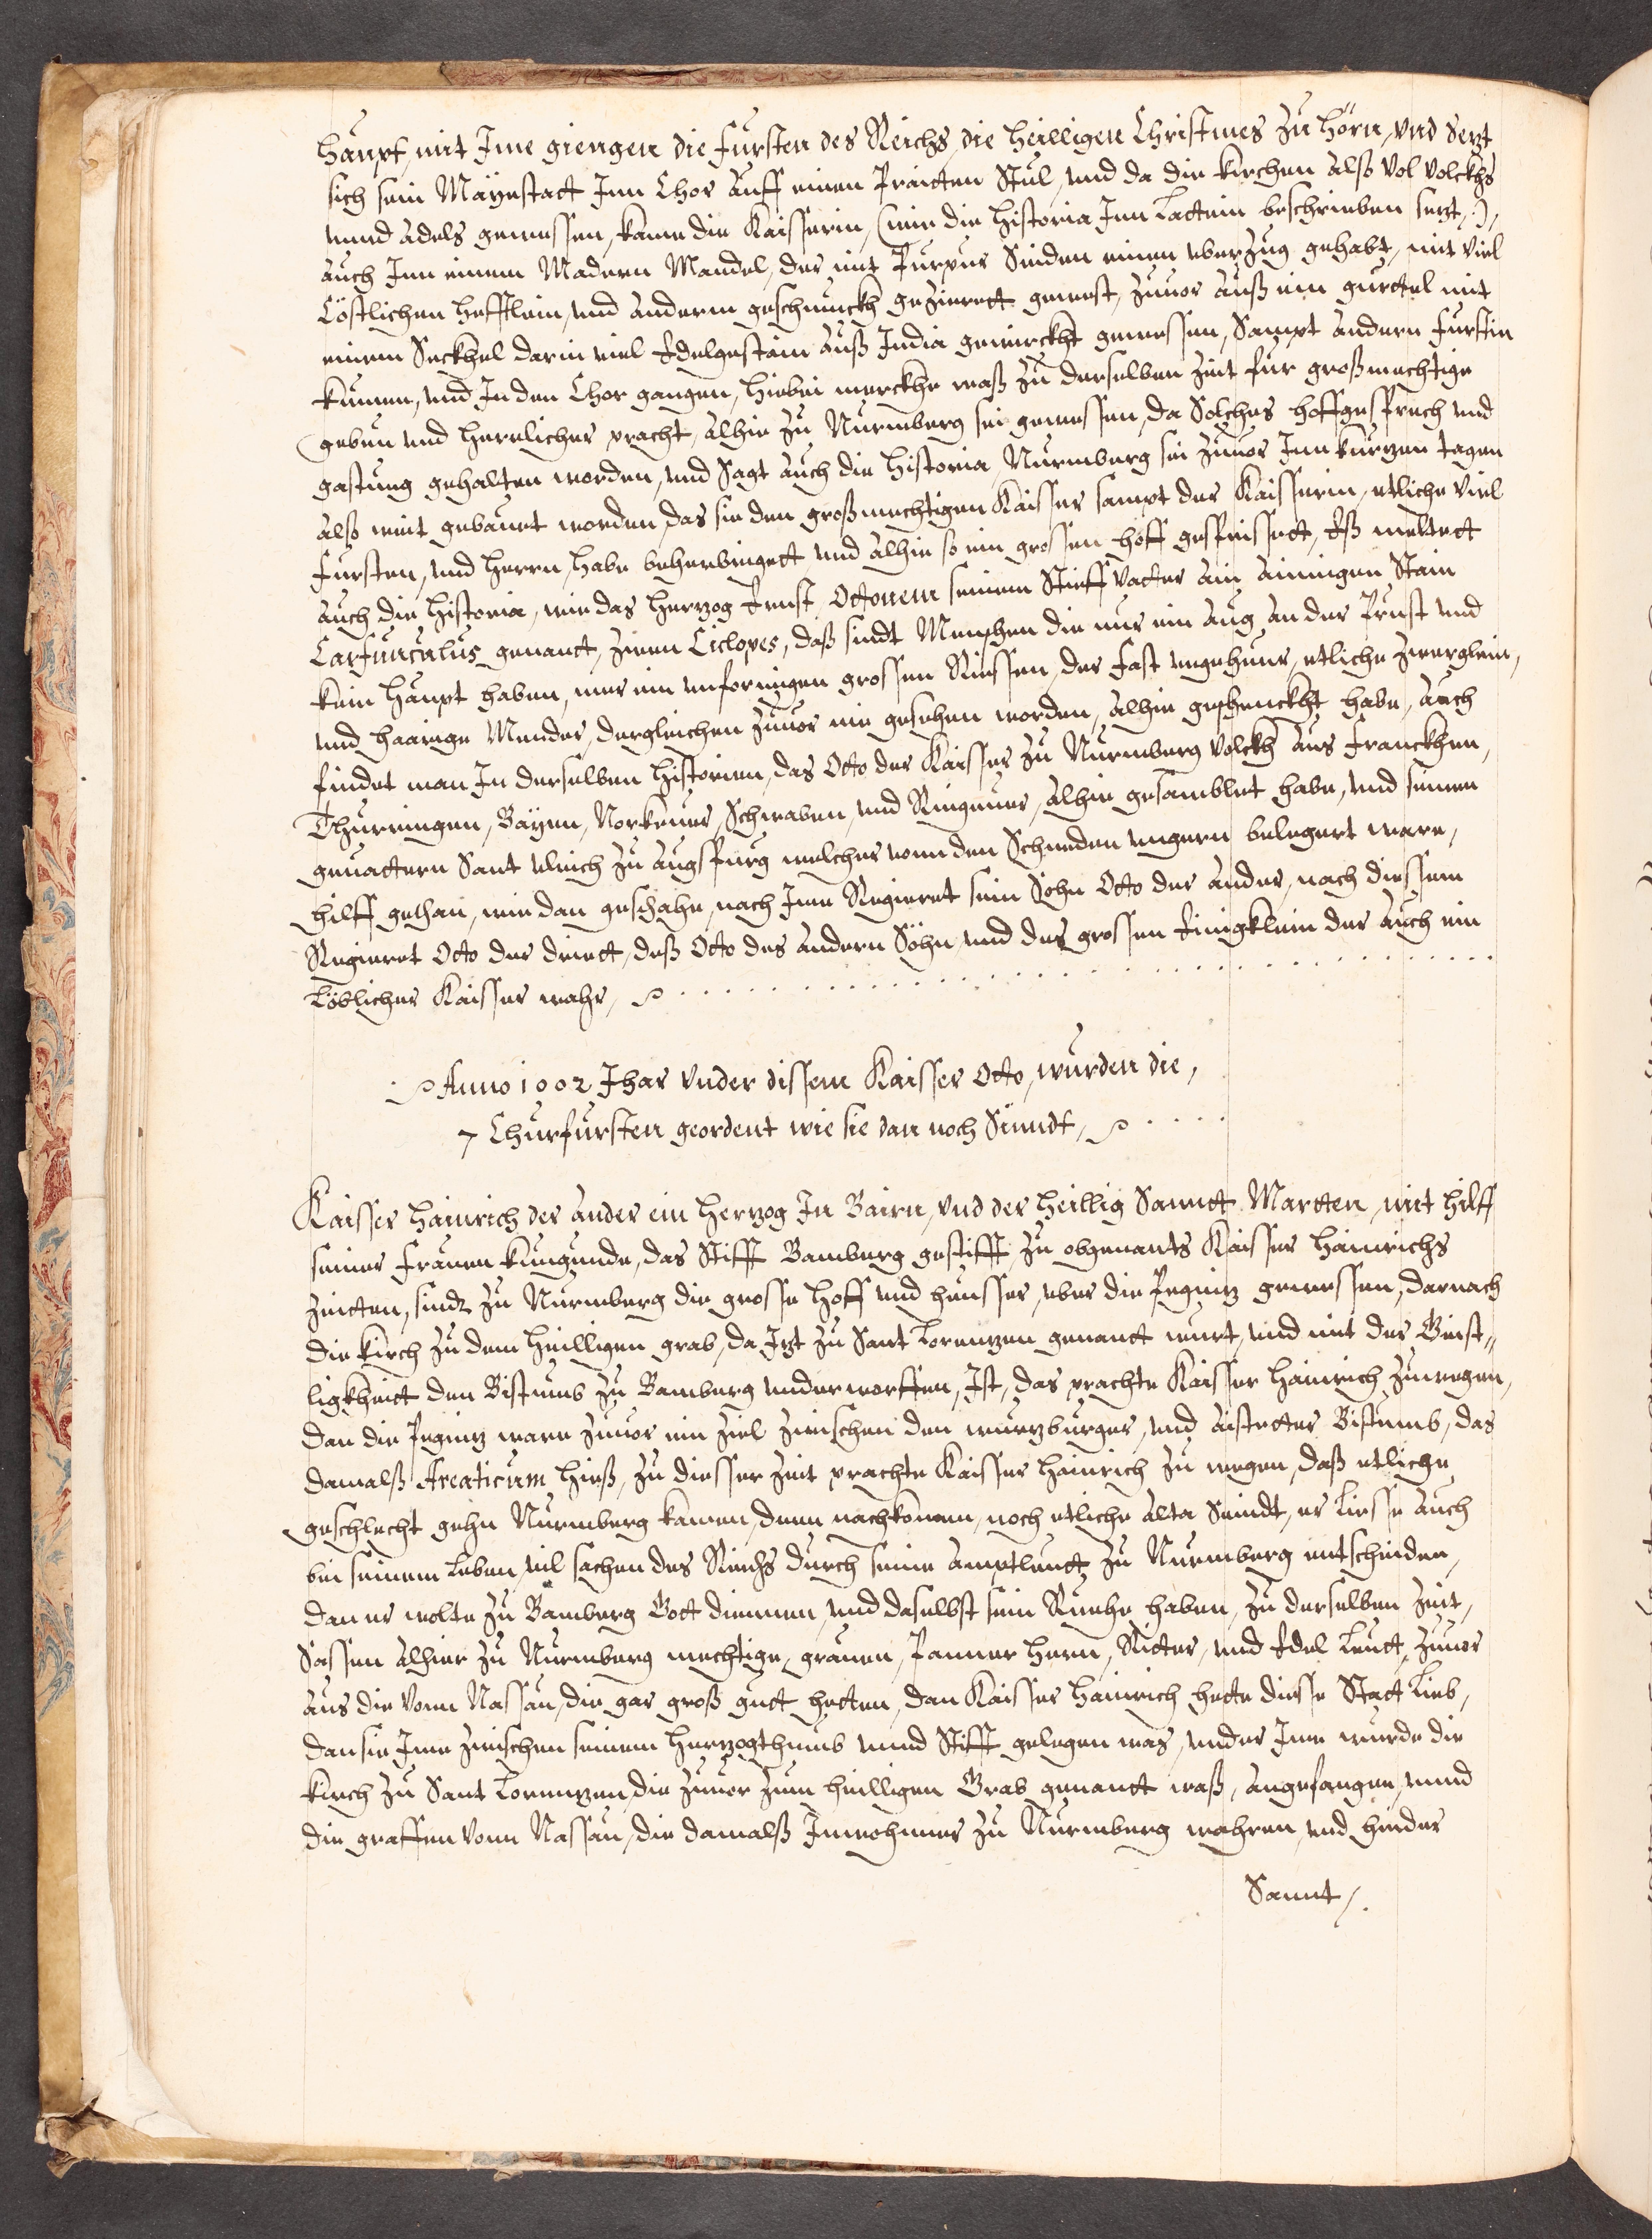 haupt, mit Jme giengen die fursten des Reichs, die heilligen Christmes zu hörn, vnd setzt
sich sein Mäyestatt Jnn Chor auff einen Praitten Stul, vnd da die kirchen alß vol volckhs
vnnd adels gewessen, kame die Kaisserin, (wie die historia Jnn Lattein beschrieben setzt,:),
auch Jnn einem Madern Mandel, der mit Purpur Seiden einen vberzug gehabt, mit viel
Cöstlichen hefftlein, vnd anderm geschmuckh gezierett gewest, zuuor auß ein gurttel mit
einem Seckhel darin viel Edelgestain auß India gewirckht gewessen, Sampt andern furstin
kumen, vnd Jn den Chor gangen, hiebei merckhe waß zu derselben zeit fur großmechtige
geben vnd herrlicher pracht, alhie zu Nurmberg sei gewessen, da Solches hoffgesprech vnd
gastung gehalten worden, vnd Sagt auch die historia, Nurmberg sei zuuor Jnn kurtzen tagen
alß weit gebauet worden, das sie den großmechtigen Kaisser sampt der Kaisserin, etliche viel
fursten, vnd herrn, habe beherbergett vnd alhie so ein grossen hoff gespeissett, Eß meltett
auch die historia, wie das hertzog Ernst, Ottonem seinem Stieff Vatter ain ainigen Stain
Carfunculus genant, zwen Ciclopes, daß sindt Menschen die nur ein aug an der Prust vnd
kein haupt haben, mer ein vnforingen grossen Riessen, der fast vngeheur, etliche zwerglein,
vnd haarige Mender, dergleichen zuuor nie gesehen worden, alhie geschenckht habe, auch
findet man Jn derselben historien, das Otto der Kaisser zu Nurmberg volckh aus Franckhen,
Thurringen, Bäyen, Norkeuer, Schwaben, vnd Ringeuer, alhie gesamblet habe, vnd seinen
geuattern Sant vlrich zu augspurg welcher vonn den Schneden vngern belegert ware,
hilff gethan, wie dan geschahe, nach Jme Regieret sein Sohn Otto der ander, nach diessem
Regieret Otto der driett, deß Otto des andern Söhn, vnd des grossen Einigklein der auch ein
Löblicher Kaisser wahr,
Anno 1002 Jhar vnder dissem Kaisser Otto, wurden die,
7 Churfursten geordent wie sie dan noch Sinndt,
Kaisser Hainrich der ander ein Hertzog Jn Bairn, vnd der heillig Sannt Martten, mit hilff
seiner Frauen kungunde, das Stifft Bamberg gestifft, zu obgenants Kaisser Hainrichs
zeitten, sindt zu Nurmberg die grosse hoff vnd heusser, vber die Pegnitz gewessen, darnach
die kirch zu dem heilligen grab, da Jtzt zu Sant Lorentzen genant wurt, vnd mit der Geist„
ligkheit den Bistumb zu Bamberg vnderworffen, Jst, das prachte Kaisser Hainrich zuwegen,
dan die Pegnitz ware zuuor ein ziel zwischen den wurtzburger, vnd aistetter Bistumb, das
damalß Areaticum hieß, zu diesser zeit prachte Kaisser Hainrich zu wegen, daß etliche
geschlecht gehn Nurmberg kamen, denn nachkomen, noch etliche alta Seindt, er liesse auch
bei seinem Leben, vil sachen des Reichs durch seine amptleutt zu Nurmberg entscheiden,
dan er wolte zu Bamberg Gott diennen, vnd daselbst sein Ruehe haben, zu derselben zeit,
Sassen alhier zu Nurmberg mechtige grauen, Panner Hern, Ritter, vnd Edel Leutt, zuuor
aus die vonn Nassau, die gar groß gutt hetten, dan Kaisser Hainrich hette diesse Statt Lieb,
dan sie Jme zwischen seinem hertzogthumb vnnd Stifft gelegen was, vnder Jme wurde die
kirch zu Sant Lorentzen, die zuuor zum heilligen Grab genantt waß, angefangen, vnnd
die graffen vonn Nassau, die damalß Jnwohnner zu Nurmberg wahren, vnd hinder
Sannt,